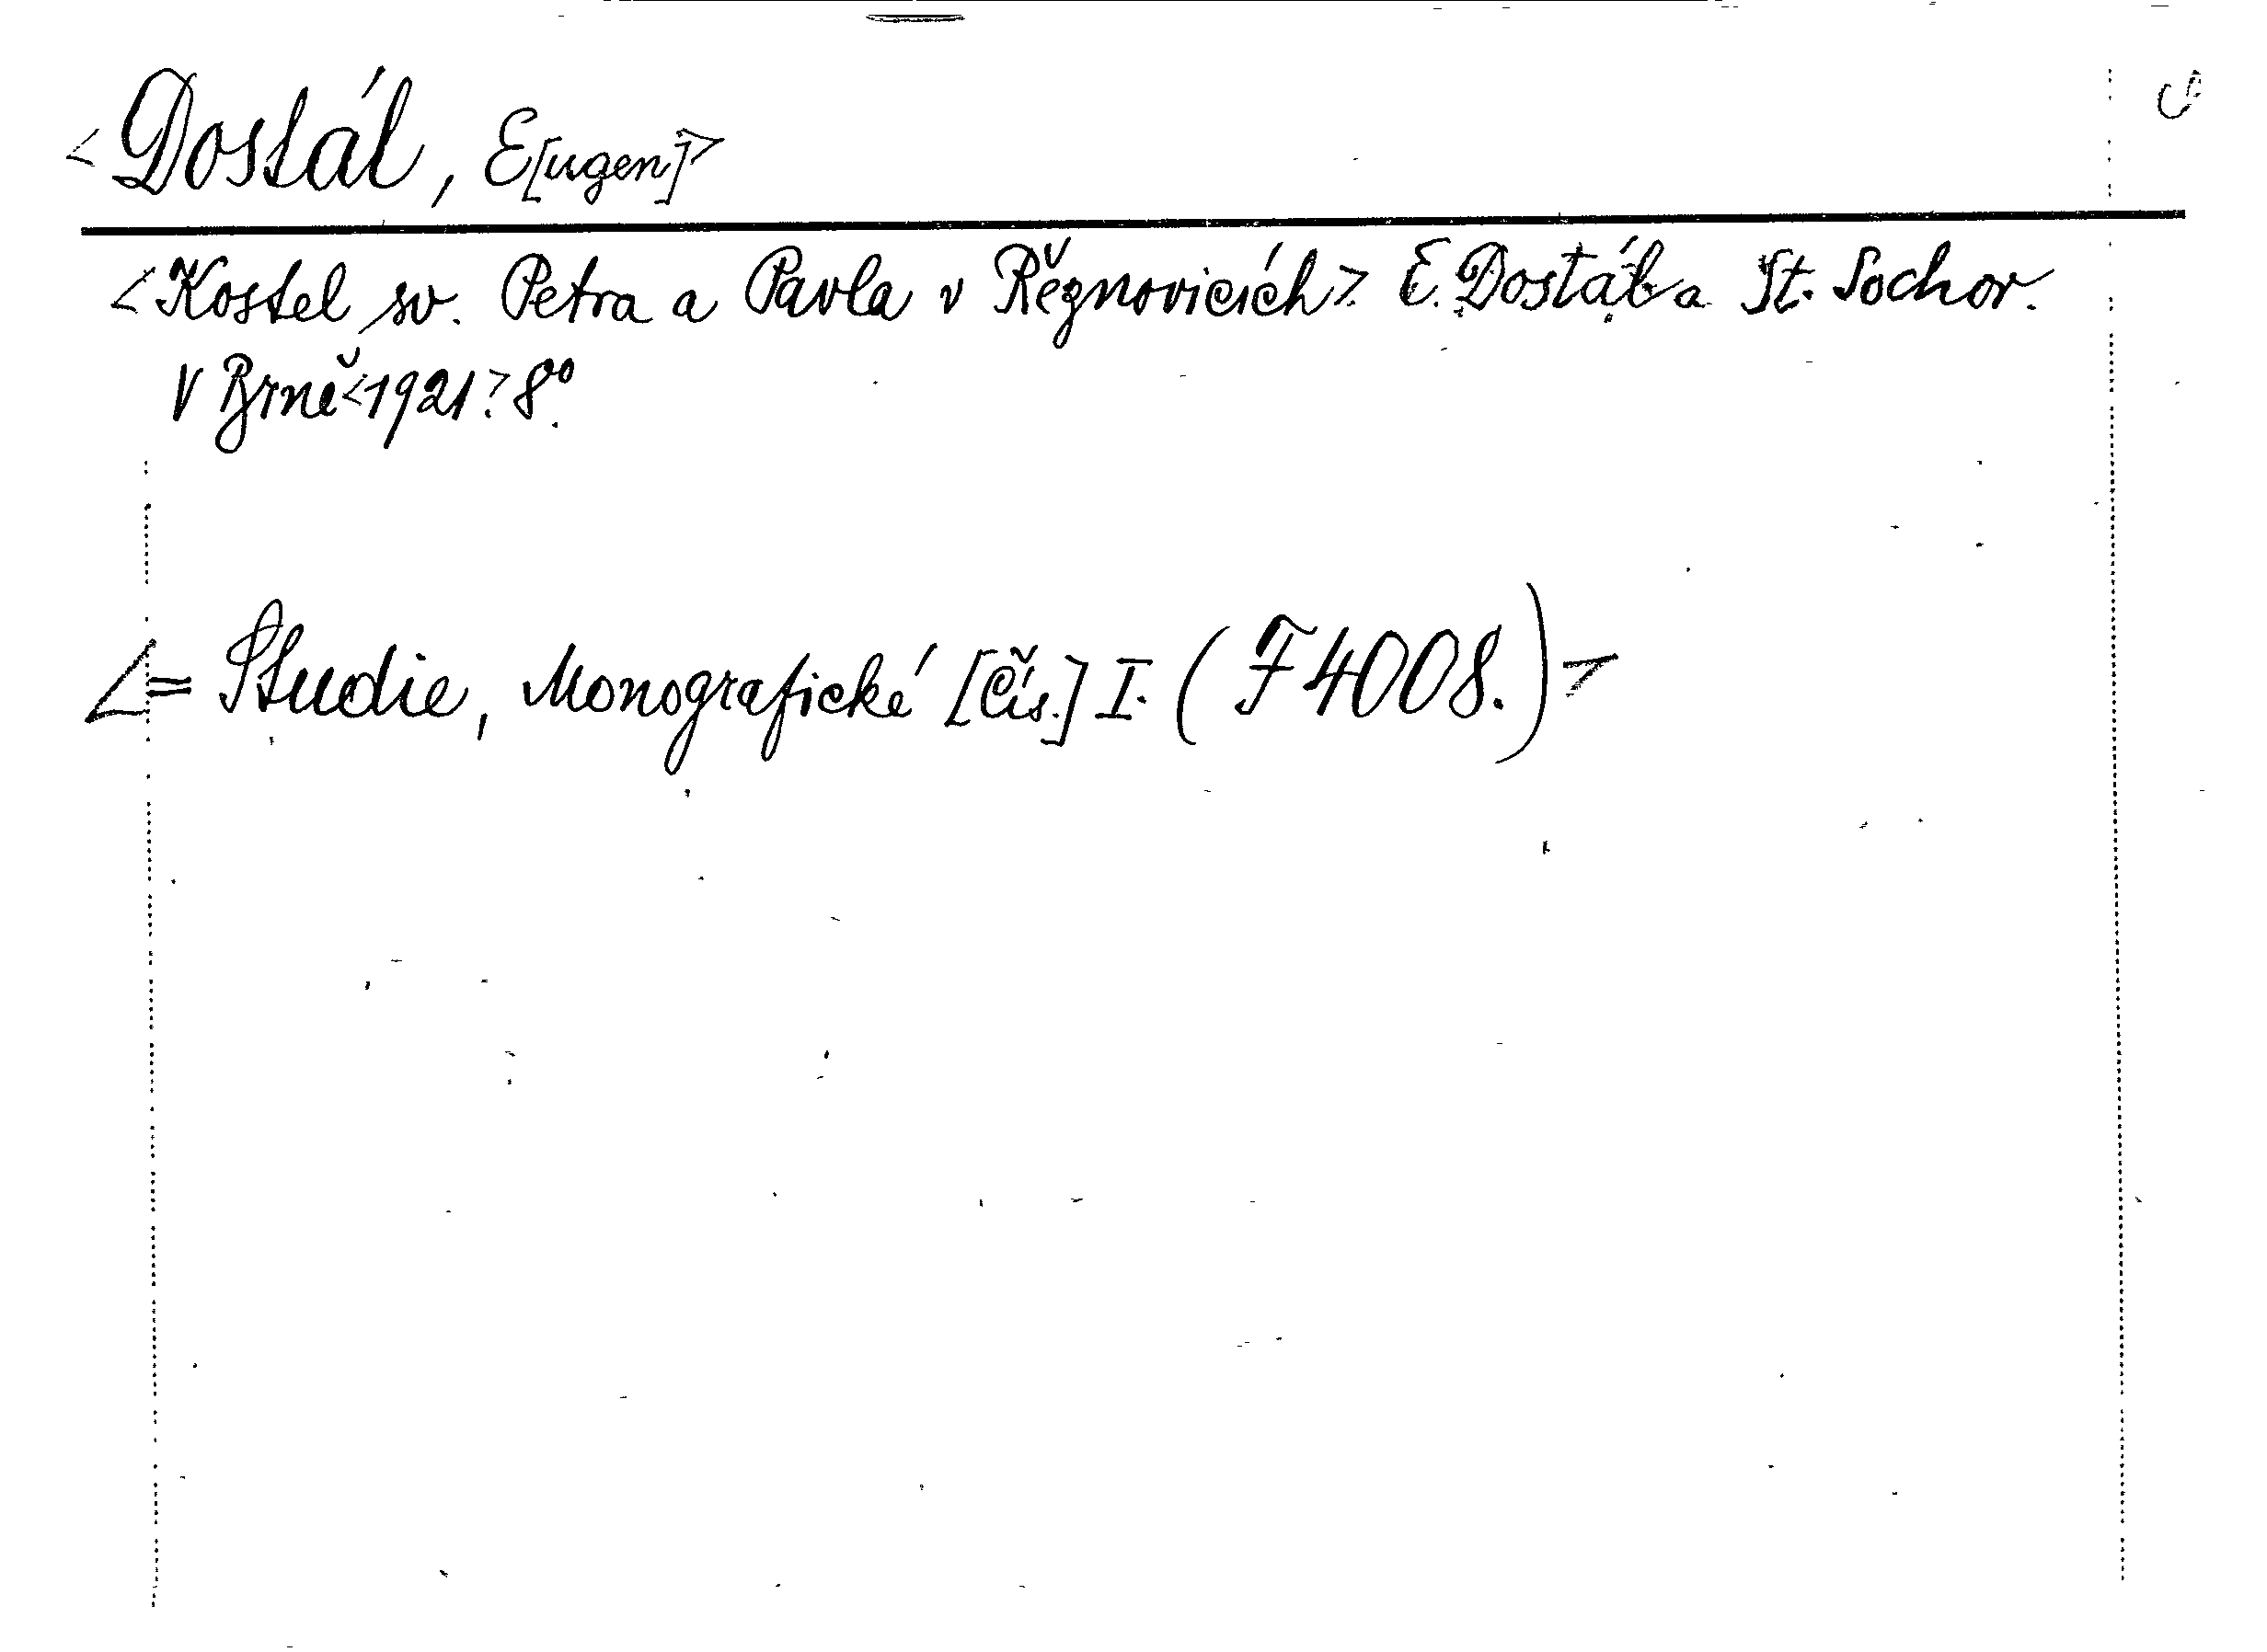 <Dostál, E[ugen]>
<Kostel sv. Petra a Pavla v Řeznovicích>. E. Dostál a St. Sochor.
V Brně <1921>. 8°.
<= Studie, Monografické [Čís.] I. (F 4008.)>